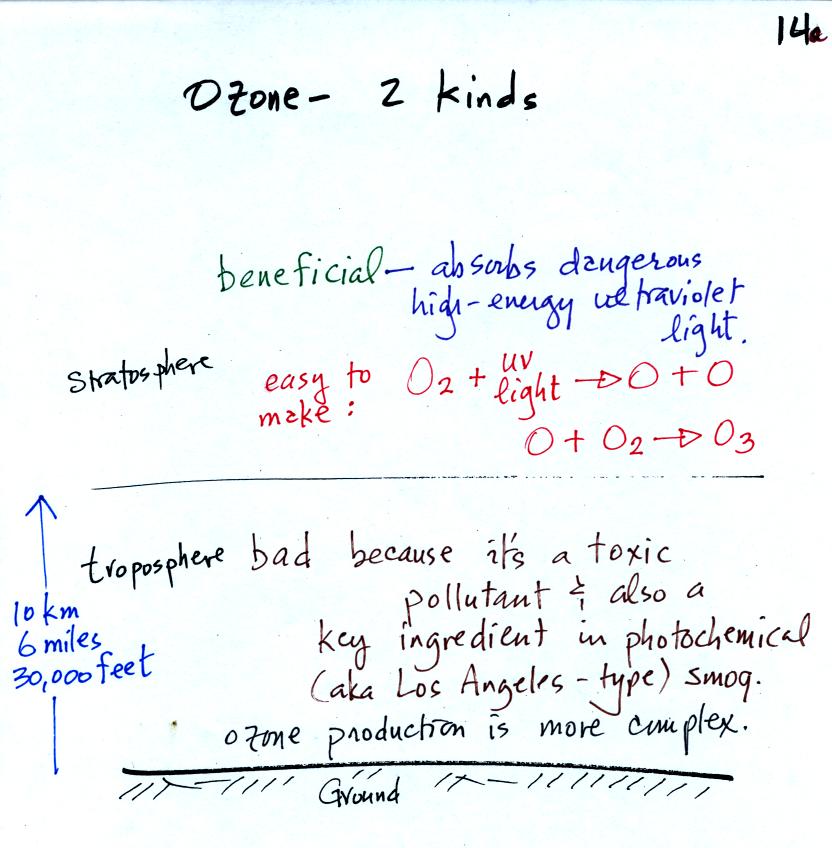 14a
Ozone - 2 kinds
beneficial - absorbs dangerous
high-energy ultraviolet
light.
Stratosphere
easy to
make :
O2 + uv light → O + O
O + O2 → O3
troposphere
bad because it's a toxic
pollutant & also a
key ingredient in photochemical
(aka Los Angeles-type) smog.
ozone production is more complex.
10 km
6 miles
30,000 feet
Ground